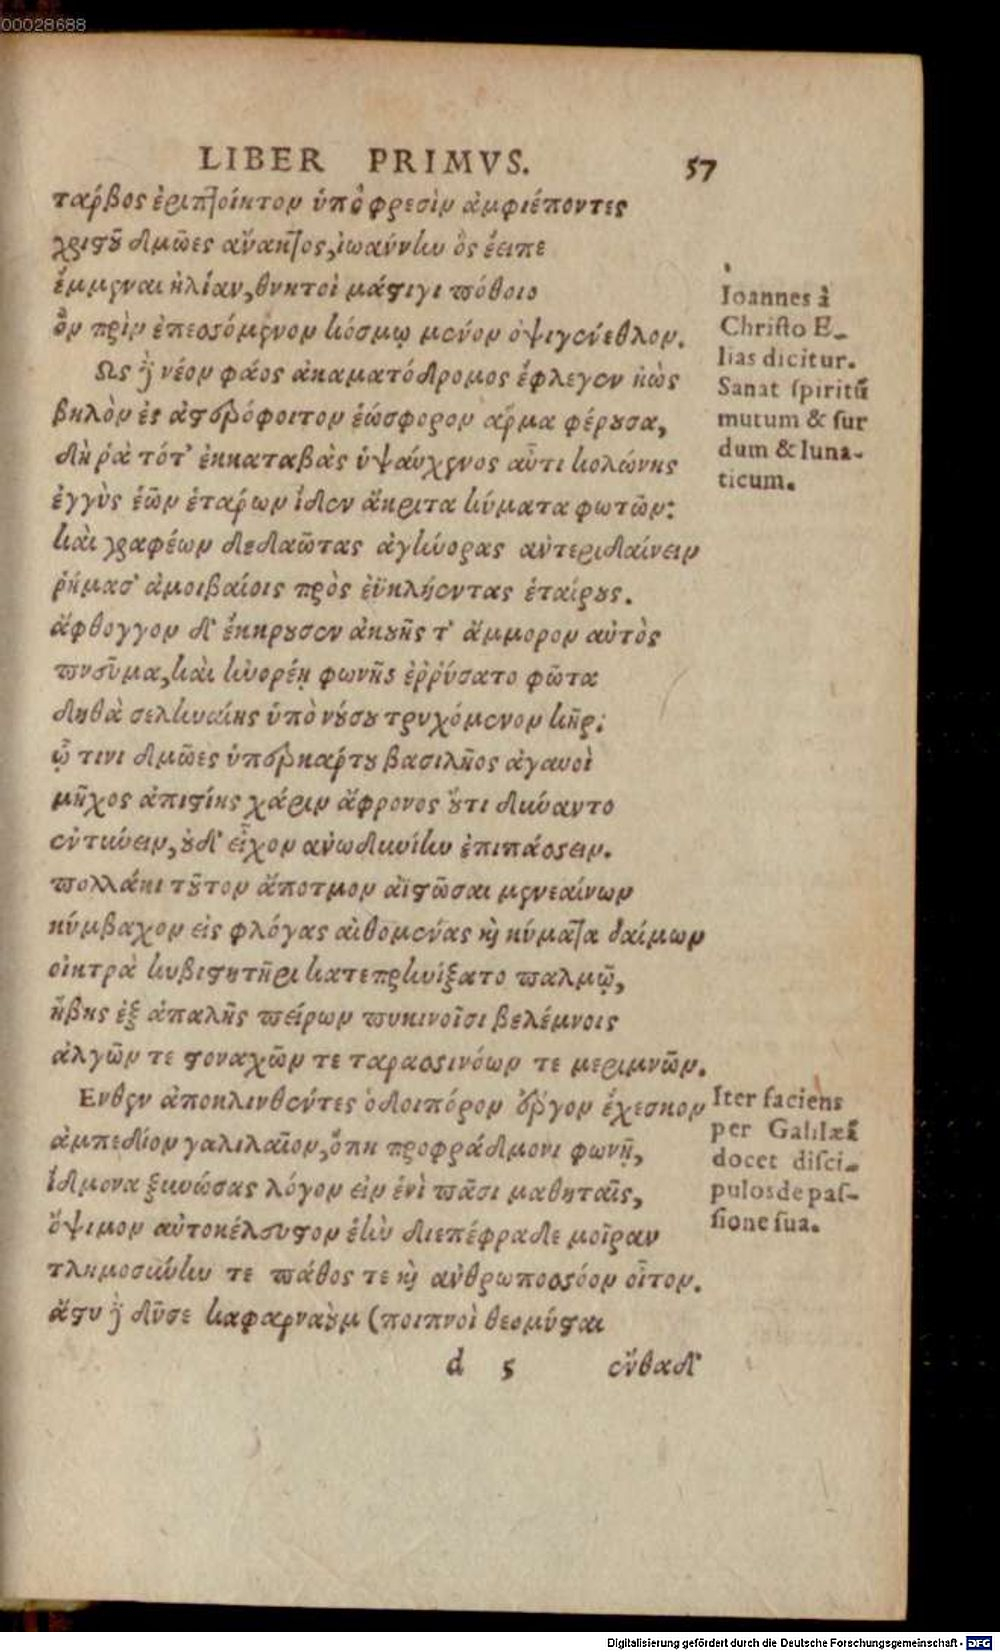 00028688
LIBER PRIMVS. 57
τάρβος ἐριπτοίητον ὑπὸ φρεσὶν ἀμφιέποντες
χριστοῦ δμῶες ἄνακτος, ἰωάννην ὃς ἔειπε
ἔμμεναι ἠλίαν, θνητοὶ μάστιγι πόθοιο
ὃν πρὶν ἐπεσσόμενον κόσμῳ μένον ὀψιγένεθλον.
Ως δὲ νέον φάος ἀκαματόδρομος ἔφλεγεν ἠὼς
βηλὸν ἐς ἀστερόφοιτον ἑώσφορον ἅρμα φέρουσα,
δὴ ῥὰ τότ' ἐκκαταβὰς ὑψαύχενος αὖτι κολώνης
ἐγγὺς ἑῶν ἑτάρων ἴδεν ἄκριτα κύματα φωτῶν:
καὶ γραφέων δεδαῶτας ἀγήνορας ἀντεριδαίνειν
ῥήμασ' ἀμοιβαίοις πρὸς ἐϋκλήεντας ἑταίρους.
ἄφθογγον δ' ἔκκρουσεν ἀκουῆς τ' ἄμμορον αὐτὸς
πνεῦμα, καὶ ἠνορέῃ φωνῆς ἐῤῥύσατο φῶτα
δηθὰ σεληναίης ὑπὸ νούσου τρυχόμενον κῆρ:
ᾧ τινι δμῶες ὑπερκάρτου βασιλῆος ἀγαυοὶ
μῆχος ἀπιστίης χάριν ἄφρονος οὔτι δύναντο
ἐντύνειν, οὐδ' εἶχον ἀνωδυνίην ἐπιπάσσειν.
πολλάκι τοῦτον ἄποτμον ἀϊστῶσαι μενεαίνων
κύμβαχον εἰς φλόγας αἰθομένας καὶ κύματα δαίμων
οἰκτρὰ κυβιστητῆρι κατεπρήνιξατο παλμῷ,
ἥβης ἐξ ἁπαλῆς πείρων πυκινοῖσι βελέμνοις
ἀλγῶν τε στοναχῶν τε ταρασσινόων τε μεριμνῶν.
Ενθεν ἀποκλινθέντες ὁδοιπόρον ἔργον ἔχεσκον
ἀμπεδίον γαλιλαῖον, ὅπῃ προφράδμονι φωνῇ,
ἴδμονα ξυνώσας λόγον εἰν ἑνὶ πᾶσι μαθηταῖς,
ὄψιμον αὐτοκέλευστον ἑὴν διεπέφραδε μοῖραν
τλημοσύνην τε πάθος τε καὶ ἀνθρωποσσόον οἶτον.
ἄστυ δὲ δῦσε καφαρναοὺμ (ποιπνοὶ θεομύσται
d 5 ἔνθαδ'
Ioannes à
Christo E-
lias dicitur.
Sanat spiritũ
mutum & sur
dum & luna-
ticum.
Iter faciens
per Galilæã
docet disci-
pulos de pas-
sione sua.
Digitalisierung gefördert durch die Deutsche Forschungsgemeinschaft - DFG